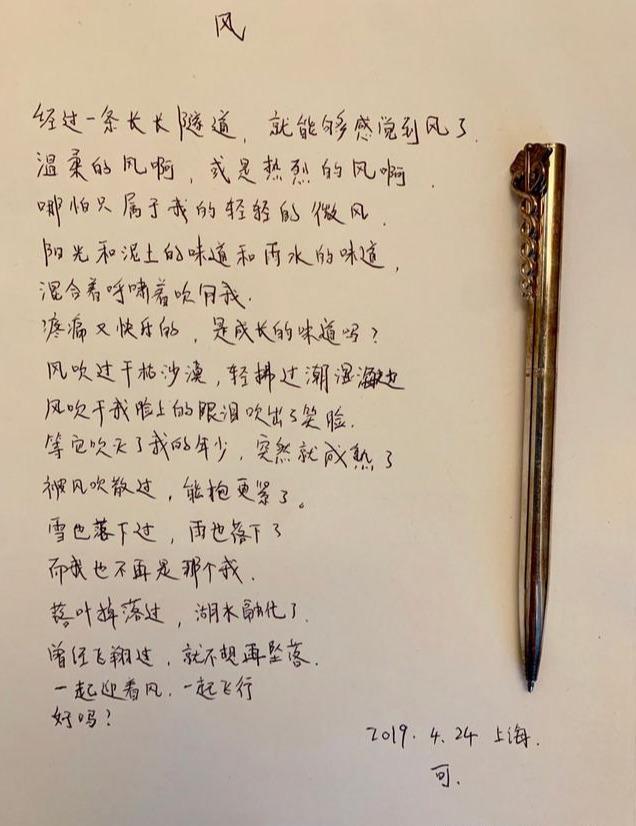 风
经过一条长长隧道，就能够感觉到风了.
温柔的风啊，或是热烈的风啊.
哪怕只属于我的轻轻的微风.
阳光和泥土的味道和雨水的味道，
混合着呼啸着吹向我.
疼痛又快乐的，是成长的味道吗？
风吹过干枯沙漠，轻拂过潮湿海边
风吹干我脸上的眼泪吹出了笑脸.
等它吹灭了我的年少，突然就成熟了
被风吹散过，能抱更紧了。
雪也落下过，雨也落下了
而我也不再是那个我.
落叶掉落过，湖水融化了.
曾经飞翔过，就不想再坠落.
一起迎着风.一起飞行
好吗？
2019. 4. 24 上海.
可.